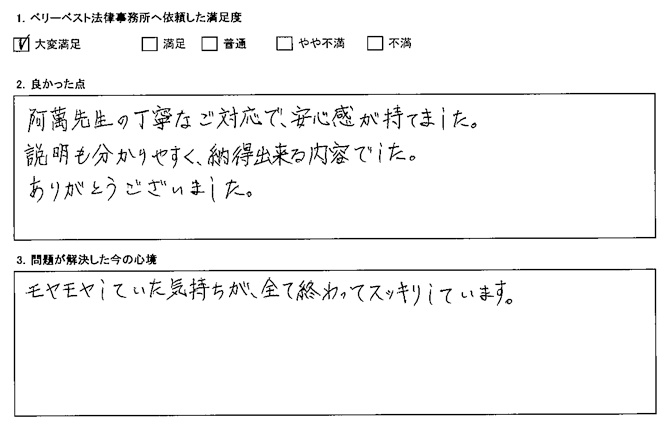 1. ベリーベスト法律事務所へ依頼した満足度
☑ 大変満足 □ 満足 □ 普通 □ やや不満 □ 不満
2. 良かった点
阿萬先生の丁寧なご対応で、安心感が持てました。
説明も分かりやすく、納得出来る内容でした。
ありがとうございました。
3. 問題が解決した今の心境
モヤモヤしていた気持ちが、全て終わってスッキリしています。